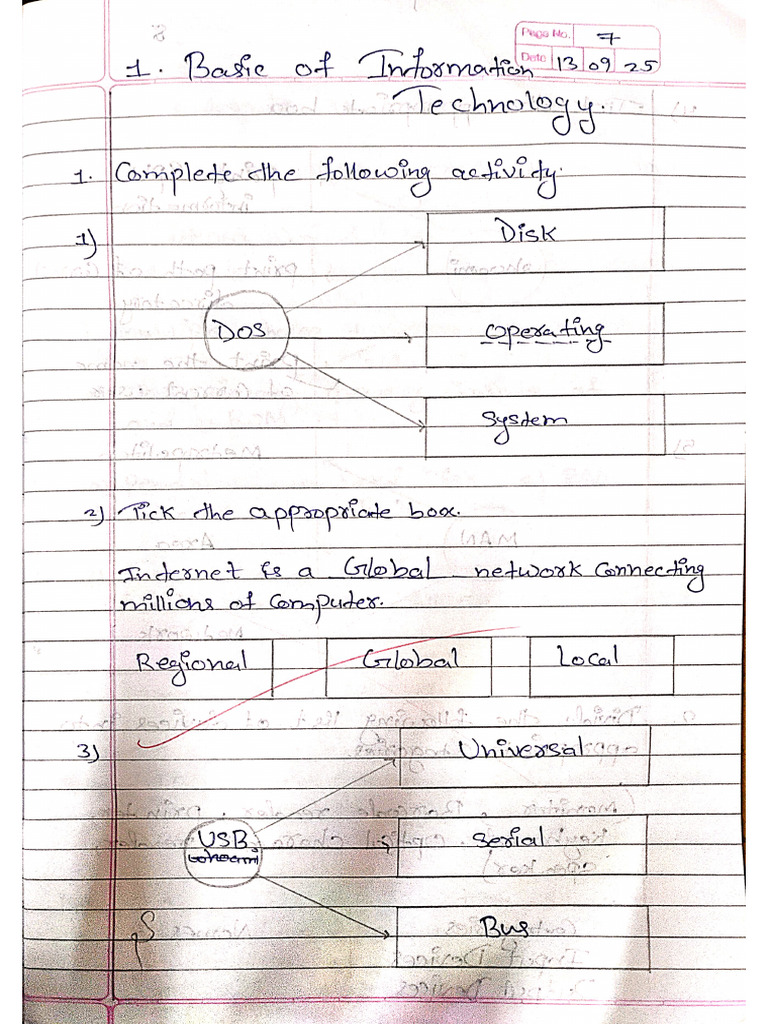 Page No. 7
Date 13 09 25
1. Basic of Information
Technology.
1. Complete the following activity.
1)
Disk
DOS
Operating
System
2) Tick the appropriate box.
Internet is a Global network connecting
millions of computer.
Regional Global Local
3)
Universal
USB
Serial
Bus